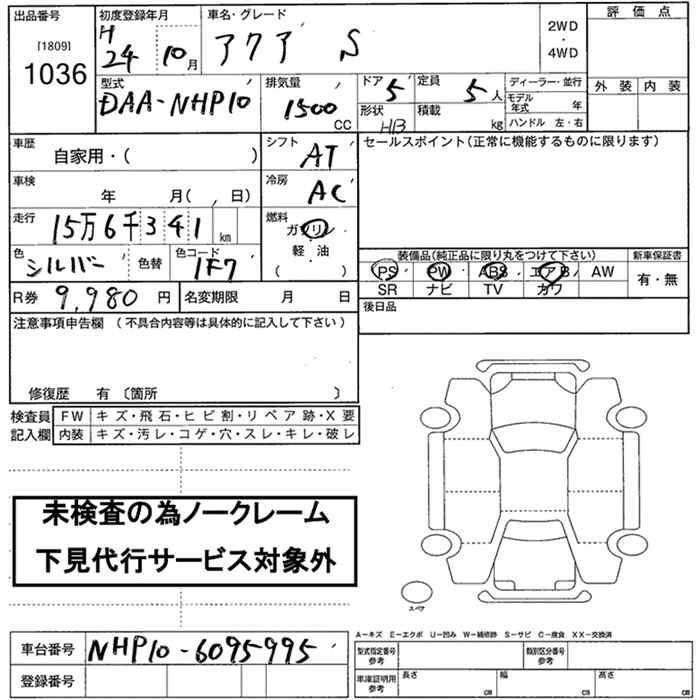 出品番号
[1809]
1036
初度登録年月
H
24 10月
車名・グレード
アクア S
2WD
・
4WD
評 価 点
外 装 内 装
型式
DAA-NHP10
排気量
1500
CC
ドア 5
形状 HB
定員 5人
積載 kg
ディーラー・並行
モデル年式 年
ハンドル 左・右
車歴
自家用・( )
シフト AT
セールスポイント(正常に機能するものに限ります)
車検
年 月( , 日)
冷房 AC
走行
15万6千341 km
燃料
ガソリン
軽・油
( )
色
シルバー
色替
色コード
1F7
装備品(純正品に限り丸をつけて下さい)
新車保証書
PS PW ABS エアB AW
SR ナビ TV カワ
有・無
R券 9,980 円
名変期限 月 日
後日品
注意事項申告欄 (不具合内容等は具体的に記入して下さい)
修復歴 有〔箇所 〕
検査員
記入欄
FW キズ・飛石・ヒビ割・リペア跡・X要
内装 キズ・汚レ・コゲ・穴・スレ・キレ・破レ
未検査の為ノークレーム
下見代行サービス対象外
スペア
A−キズ E−エクボ U−凹み W−補修跡 S−サビ C−腐食 XX−交換済
車台番号 NHP10-6095995
登録番号
型式指定番号
参考
類別区分番号
参考
車庫証明用
参考
長さ cm
幅 cm
高さ cm